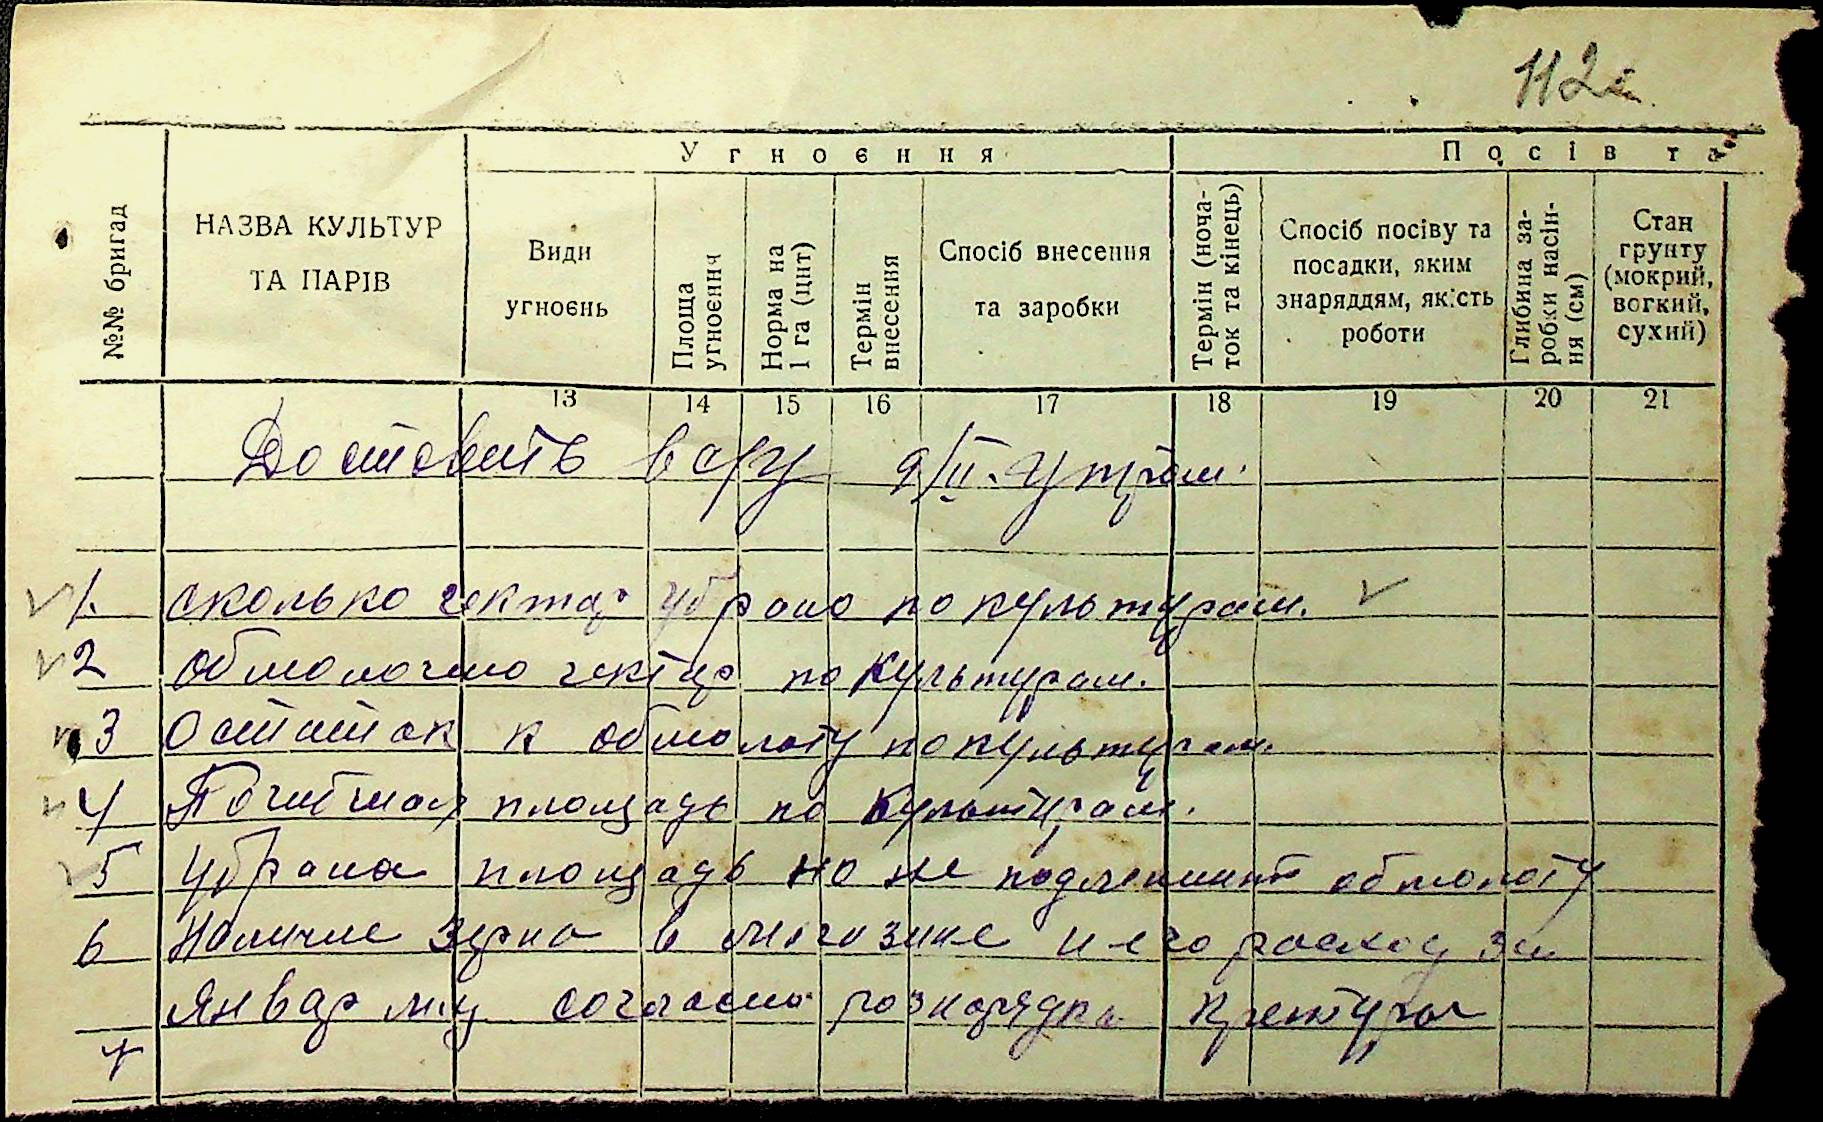 112
Угноєння Посів та
№№ бригад
НАЗВА КУЛЬТУР
ТА ПАРІВ
Види
угноєнь
Площа
угноєння
Норма на
1 га (цнт)
Термін
внесення
Спосіб внесення
та заробки
Термін (поча-
ток та кінець)
Спосіб посіву та
посадки, яким
знаряддям, якість
роботи
Глибина за-
робки насін-
ня (см)
Стан
грунту
(мокрий,
вогкий,
сухий)
13 14 15 16 17 18 19 20 21
Доставить 9/II. утром.
1. сколько гектар убрано по культурам.
2 обмолочено гектар по культурам.
3 Остаток к обмолоту по культурам.
4 Погибшая площадь по культурам.
5 Убрана площадь но не подлежит обмолоту
6 Наличие зерна в магазине и его расход за
Январ м-ц согласно
7